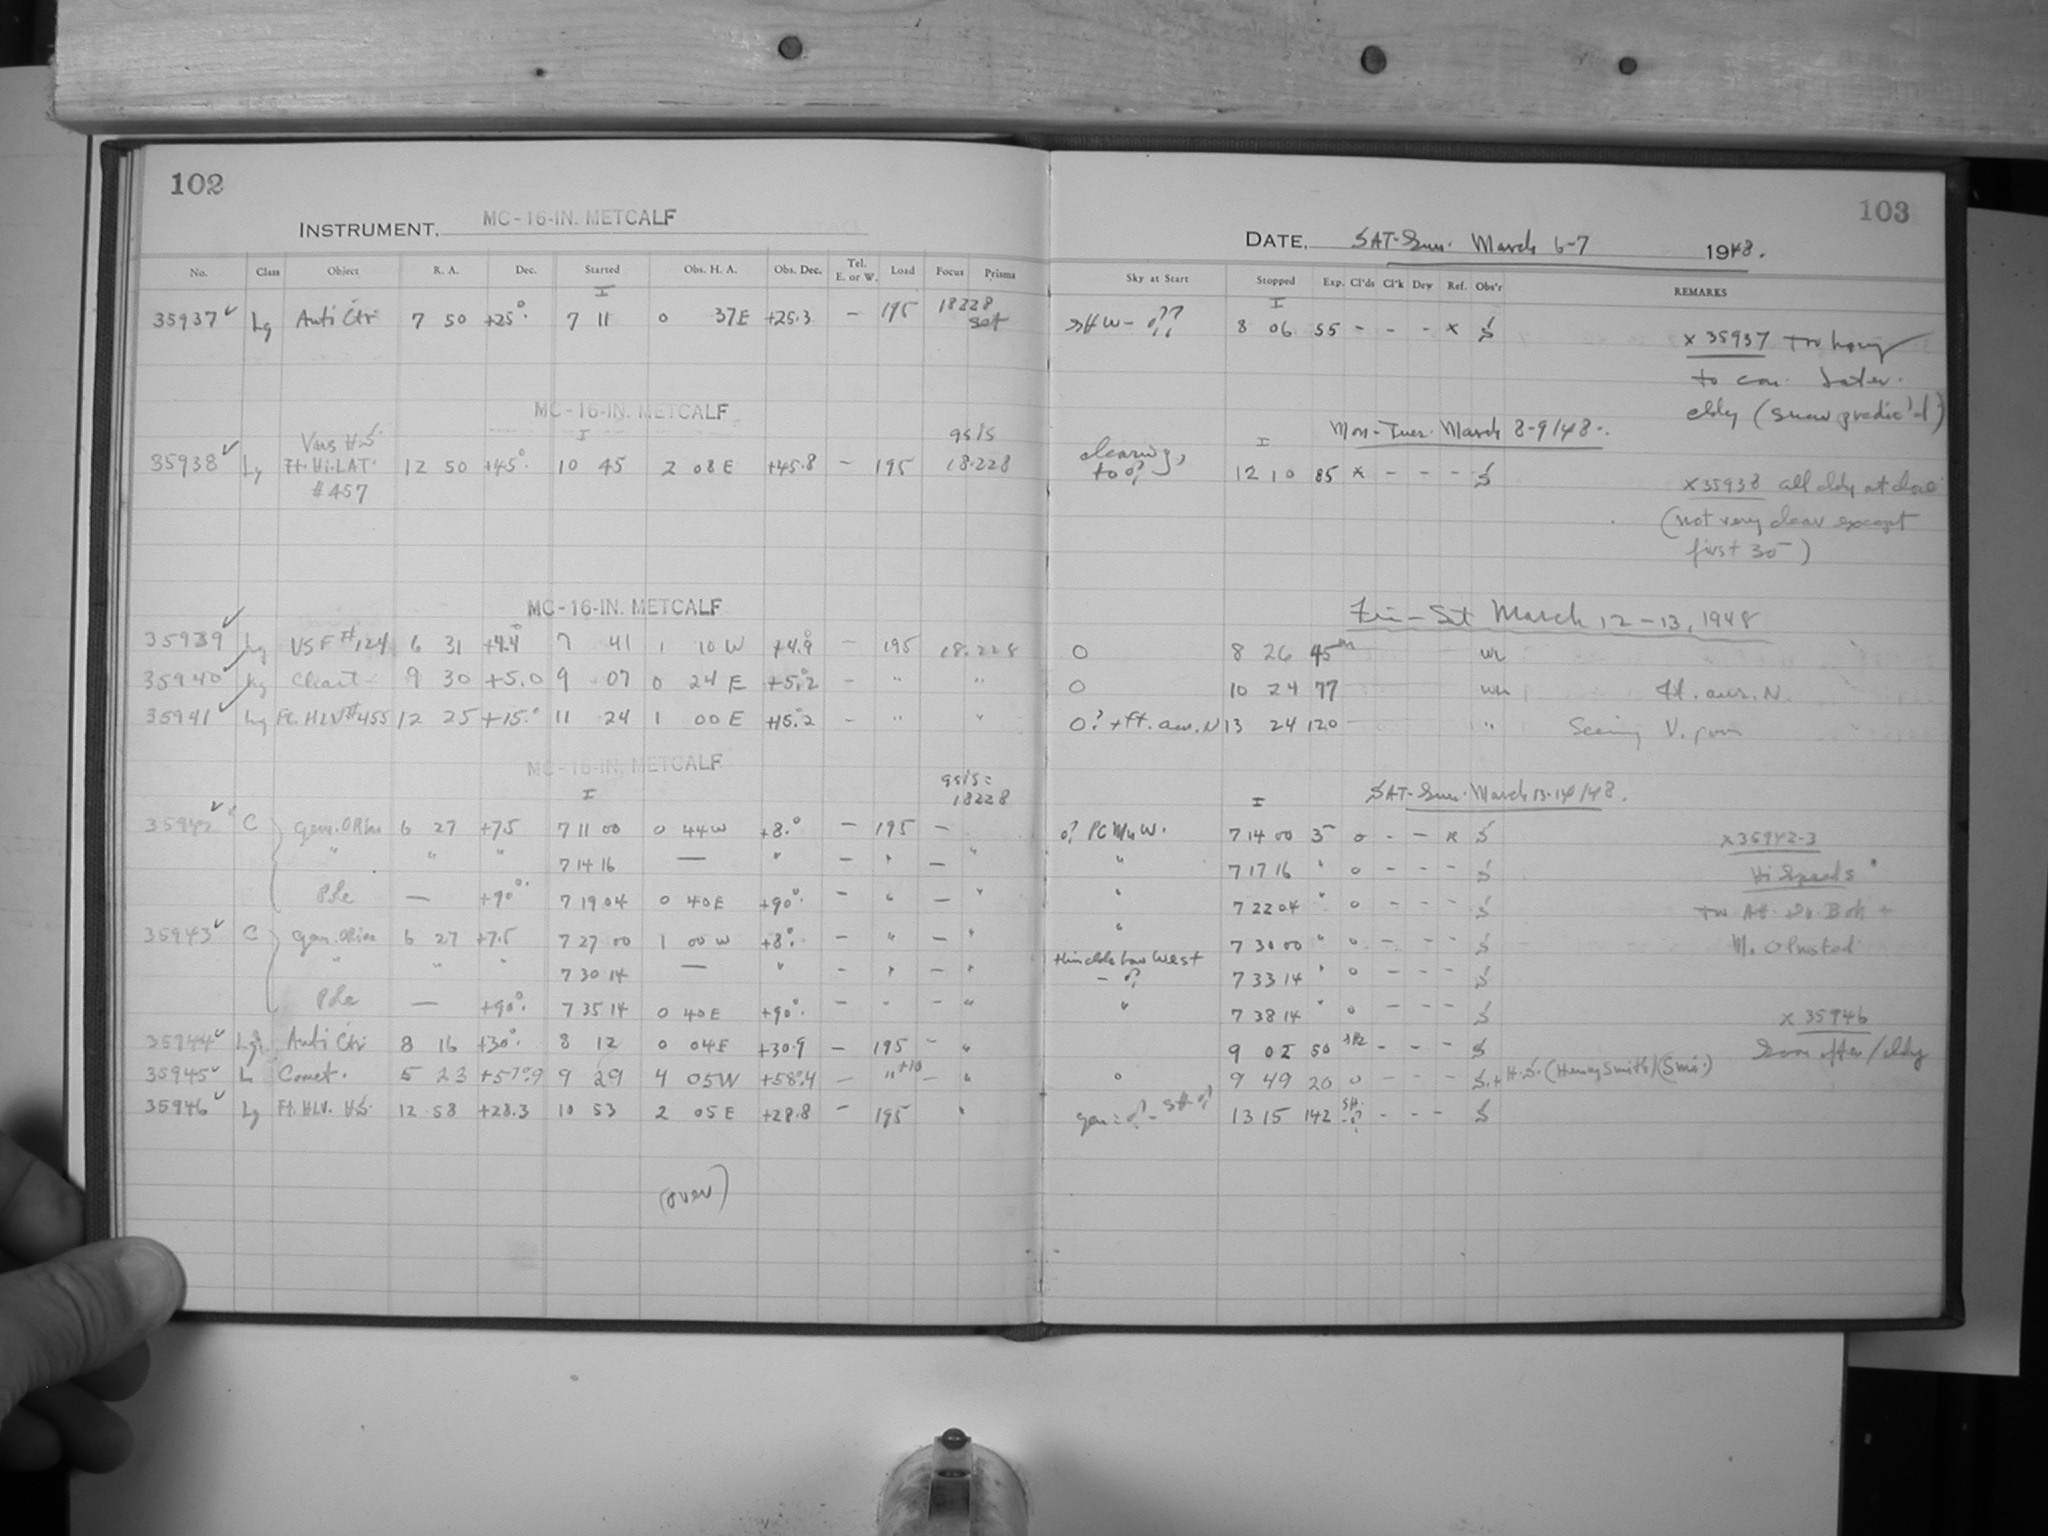 102
INSTRUMENT, MC-16-IN. METCALF
No. Class Object R. A. Dec. Started Obs. H. A. Obs. Dec. Tel. E. or W. Load Focus Prisms
I
35937 ✓ Lg Anti Ctr 7 50 +25° 7 11 0 37E +25.3 – 195 18228 set
MC-16-IN. METCALF
Vars H.S. I 9515
35938 ✓ Lg Ft. Hi. LAT. 12 50 +45° 10 45 2 08 E +45.8 – 195 18.228
#457
MC-16-IN. METCALF
35939 ✓ Lg VSF #124 6 31 +4.4° 7 41 1 10 W +4.9° – 195 18.228
35940 ✓ Lg Chart 9 30 +5.0 9 07 0 24 E +5.2° – " "
35941 ✓ Lg Ft. HLV #455 12 25 +15.° 11 24 1 00 E +15.2° – " "
MC-16-IN. METCALF
I 9515= 18228
35942 ✓ C Gam. Orion 6 27 +7.5 7 11 00 0 44 W +8.° – 195 –
" " " 7 14 16 — " – " – "
Pole — +90° 7 19 04 0 40 E +90° – " – "
35943 ✓ C Gam. Orion 6 27 +7.5 7 27 00 1 00 W +8° – " – "
" " " 7 30 14 — " – " – "
Pole — +90° 7 35 14 0 40 E +90° – - – "
35944 ✓ Lg Anti Ctr 8 16 +30° 8 12 0 04 E +30.9 – 195 – "
35945 ✓ L Comet. 5 23 +57.°9 9 29 4 05 W +58.°4 – " +10 – "
35946 ✓ Lg Ft. HLV. H.S. 12 58 +28.3 10 53 2 05 E +28.8 – 195 "
(over)
103
DATE, SAT-Sun. March 6-7 1948.
Sky at Start Stopped Exp. Cl'ds Cl'k Dew Ref. Obs'r REMARKS
I
8 06 55 – – – x S
x 35937
to con. later.
cldy (snow predic'd)
Mon-Tues. March 8-9/48.
I
clearing,
to 12 10 85 x – – – S
x 35938 all cldy at close
(not very clear except
first 30 –)
Fri-Sat March 12-13, 1948
O 8 26 45m WL
O 10 24 77 Ft. aur. N.
O? + ft. aur. N 13 24 120 " Seeing V. poor
SAT-Sun. March 13-14/48.
I
7 14 00 3– o – – x S x 35942-3
" 7 17 16 " o – – – S Hi Speeds
" 7 22 04 " o – – – S
" 7 30 00 " o – – – S M. Olmsted
thin clds low West
7 33 14 " o – – – S
" 7 38 14 " o – – – S x 35946
9 02 50 – – – S Soon after / cldy
o 9 49 20 o – – – S. + H.S. (Henry Smith) (Smi.)
13 15 142 – – – S